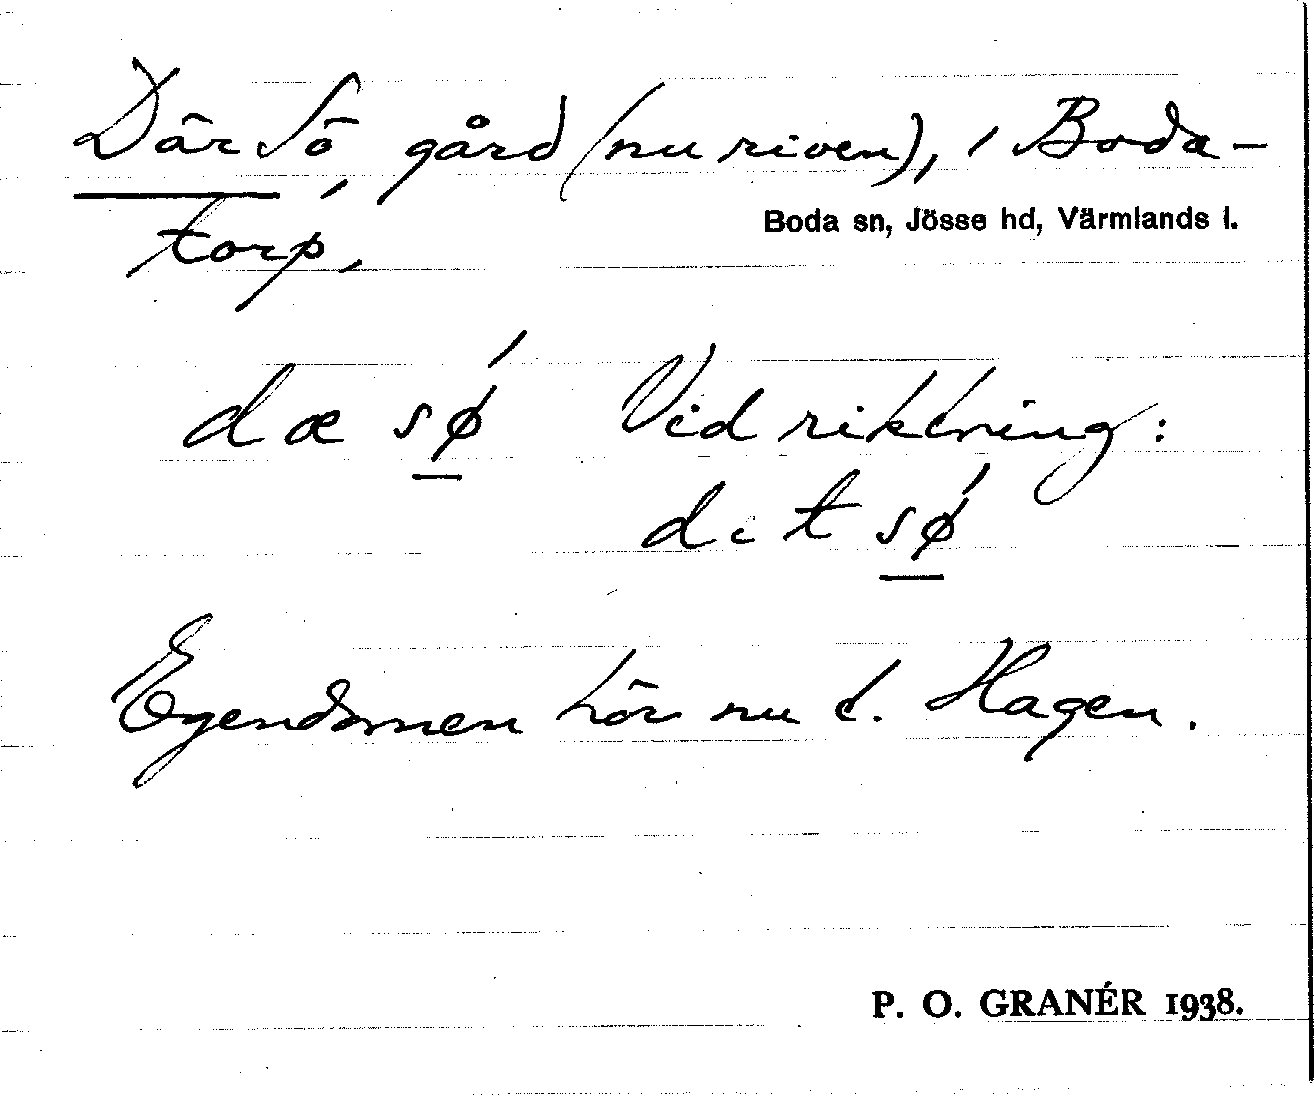 Där Sö, gård (nu riven), i Boda-
Boda sn, Jösse hd, Värmlands l.
torp,
dæ sǿ Vid riktning:
dit sǿ
Egendomen hör nu t. Hagen.
P. O. GRANÉR 1938.